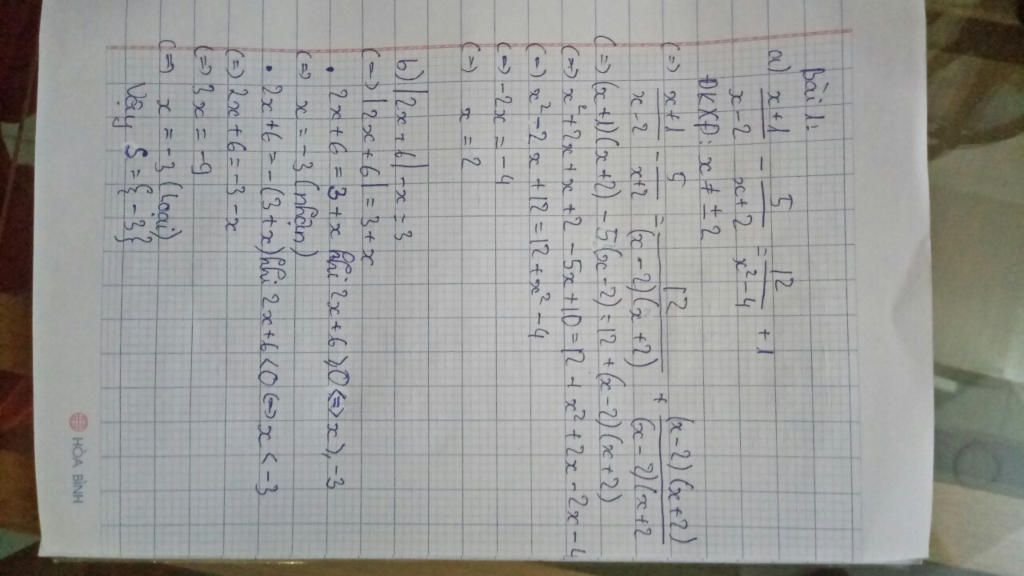 Bài 1:
a) x+1/x-2 - 5/x+2 = 12/x²-4 + 1
ĐKXĐ: x ≠ ±2
(=) x+1/x-2 - 5/x+2 = 12/(x-2)(x+2) + (x-2)(x+2)/(x-2)(x+2
(=) (x+1)(x+2) - 5(x-2) = 12 + (x-2)(x+2)
(=) x²+2x+x+2-5x+10 = 12+x²+2x-2x-4
(=) x²-2x+12 = 12+x²-4
(=) -2x = -4
(=) x = 2
b) |2x+6| -x = 3
(=) |2x+6| = 3+x
• 2x+6 = 3+x khi 2x+6 ≥ 0 (=) x ≥ -3
(=) x = -3 (nhận)
• 2x+6 = -(3+x) khi 2x+6 < 0 (=) x < -3
(=) 2x+6 = -3-x
(=) 3x = -9
(=) x = -3 (loại)
Vậy S = {-3}
HÒA BÌNH